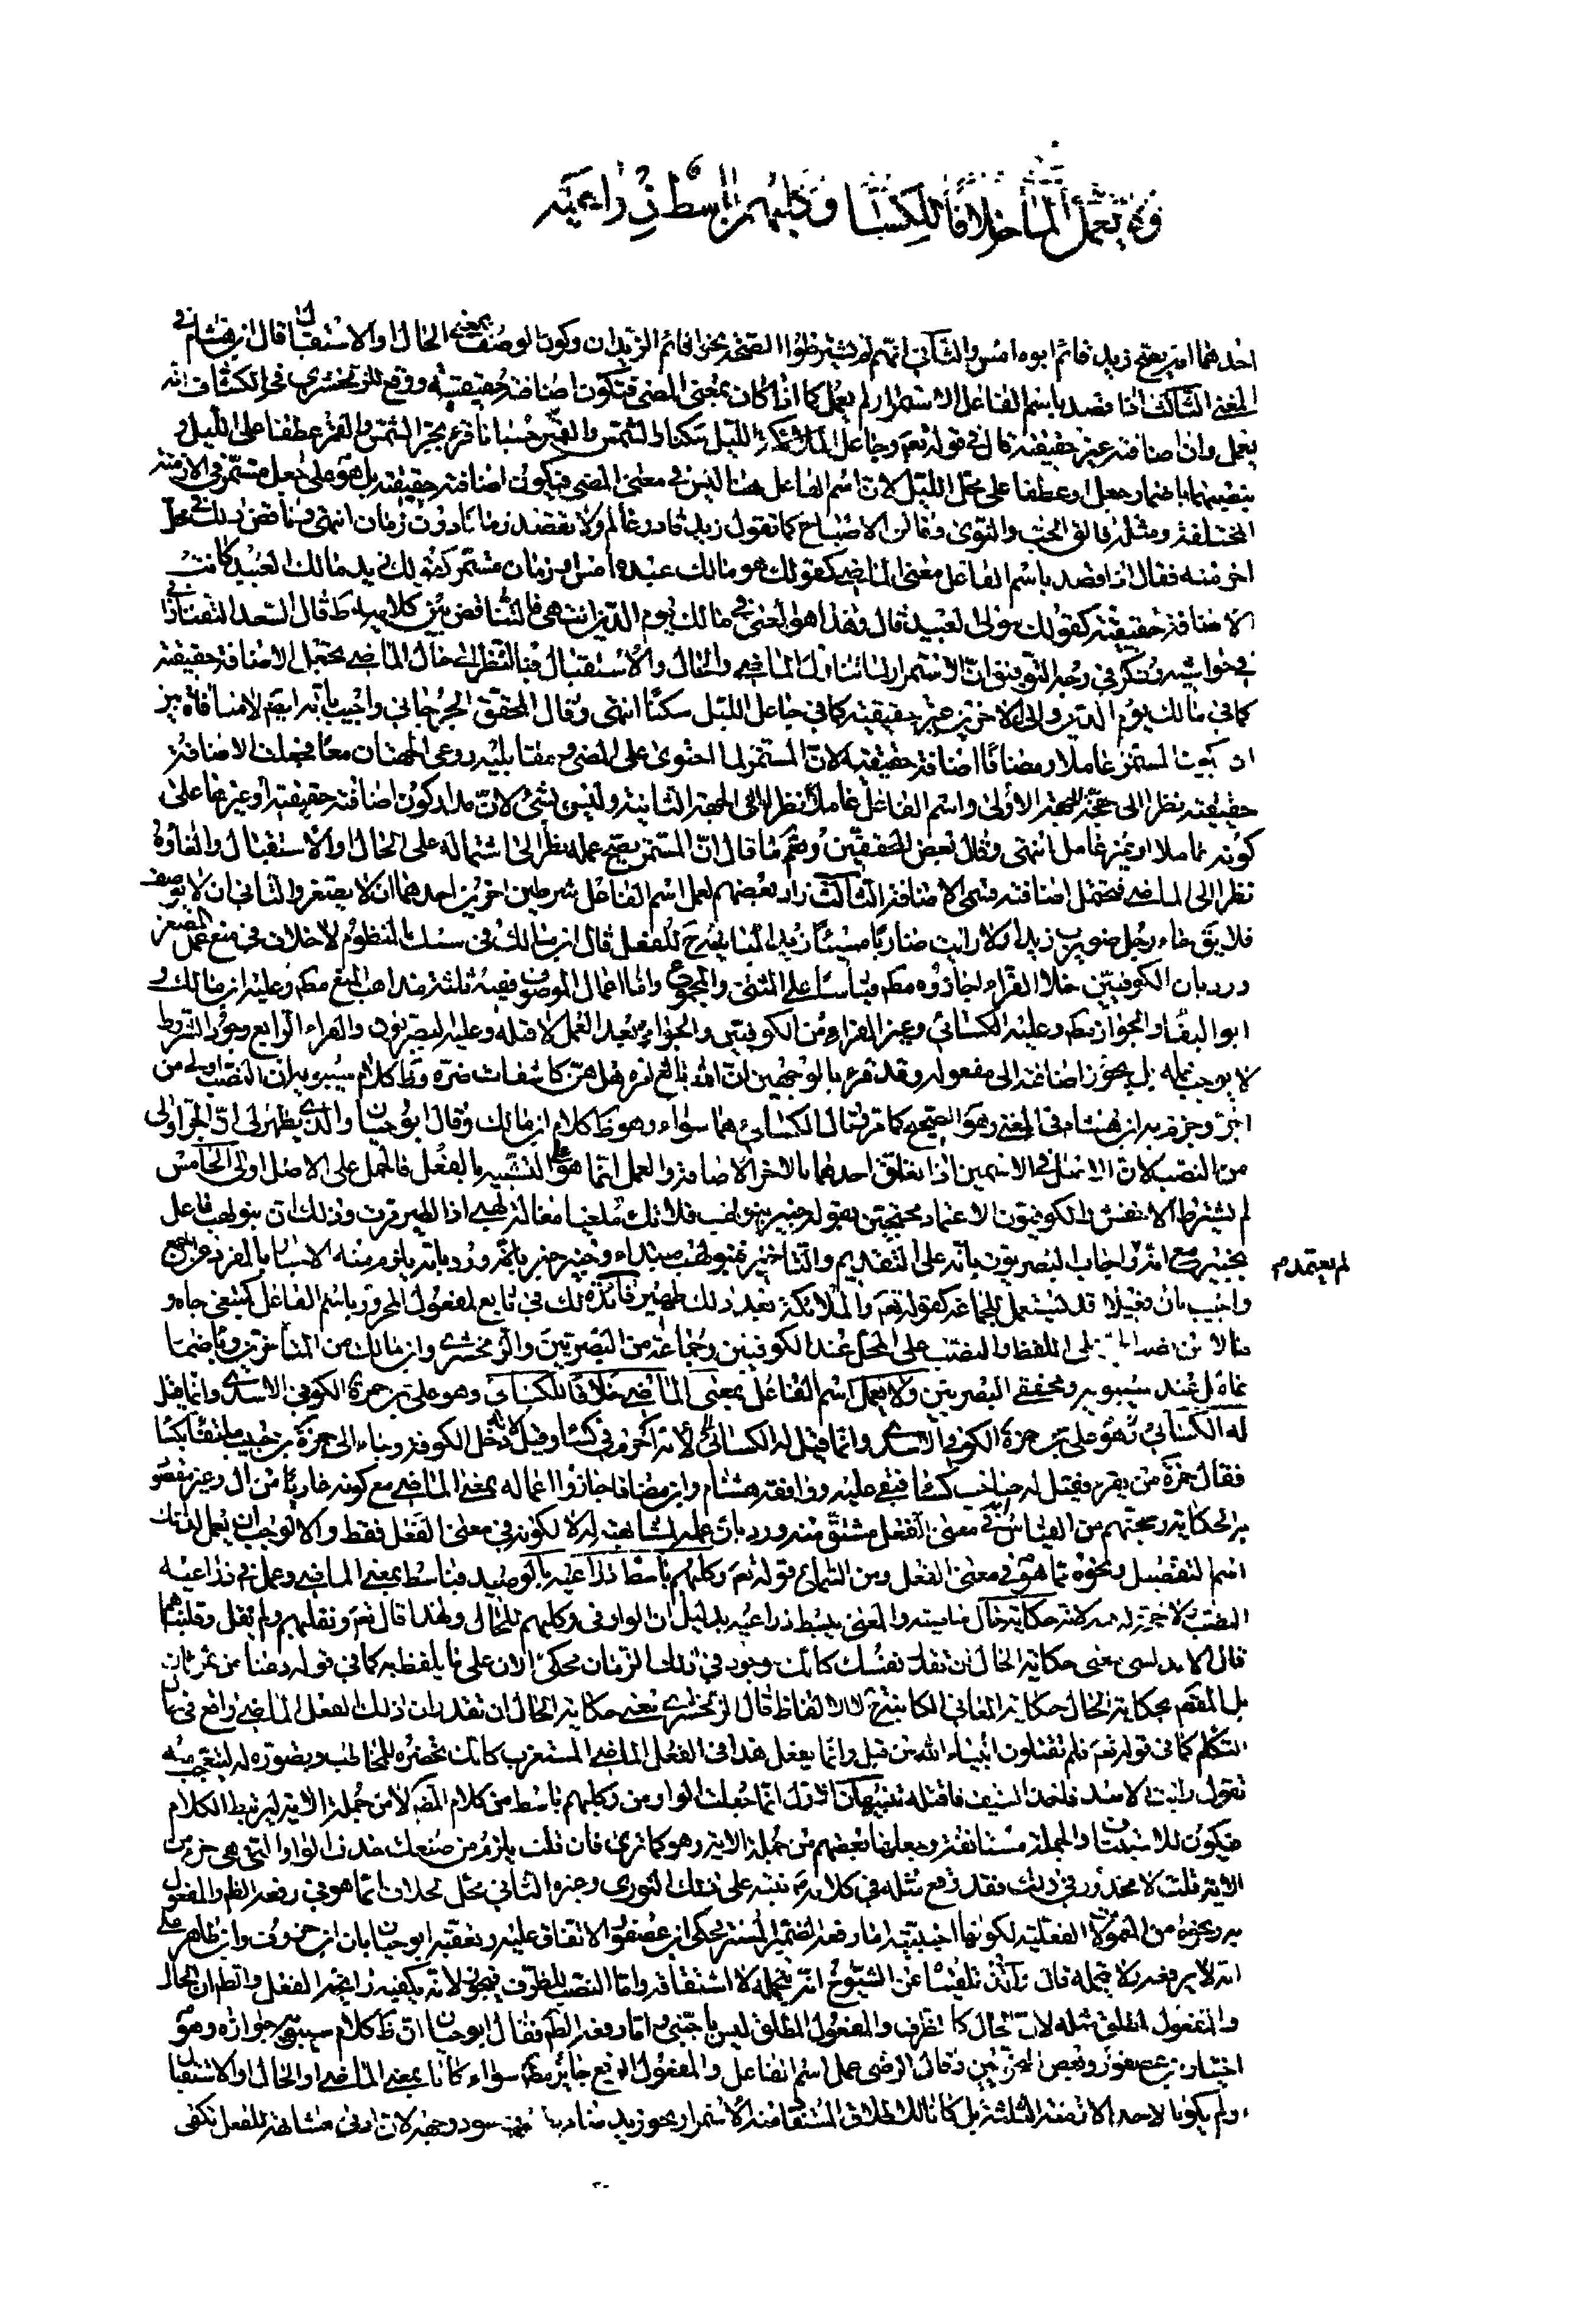 احدهما انه يصح زيد قائم ابوه امس والثاني انهم لم يشترطوا لصحة نحو اقائم الزيدان وكون الوصف بمعنى الحال او الاستقبال قال ابن هشام في
المغني الثالث اذا قصد باسم الفاعل الاستمرار لم يعمل كما اذا كان بمعنى المضي فتكون اضافته حقيقية ووقع للزمخشري في الكشاف انه
يعمل وان اضافته غير حقيقية قال في قوله تعم وجاعل الليل سكنا والشمس والقمر حسبانا قرئ بجر الشمس والقمر عطفا على الليل و
بنصبهما باضمار جعل او عطفا على محل الليل لان اسم الفاعل هنا ليس في معنى المضي فيكون اضافته حقيقية بل هو على جعل مستمر في الازمنة
المختلفة ومثله فالق الحب والنوى وفالق الاصباح كما تقول زيد قادر عالم ولا تقصد زمانا دون زمان انتهى وناقض ذلك في محل
اخر منه فقال اذا قصد باسم الفاعل معنى الماضي كقولك هو مالك عبده امس او زمان مستمر كقولك زيد مالك العبيد كانت
الاضافة حقيقية كقولك مولى العبيد قال وهذا هو المعنى في مالك يوم الدين انتهى فالتناقض بين كلاميه ظ قال السعد التفتازاني
في حواشيه وذكر في وجه التوفيق ان الاستمرار لما تناول الماضي والحال والاستقبال فبالنظر الى حال الماضي يجعل الاضافة حقيقية
كما في مالك يوم الدين والى الاخرين غير حقيقية كما في جاعل الليل سكنا انتهى وقال المحقق الجرجاني واجيب بانه لا منافاة بين
ان يكون المستمر عاملا ومضافا اضافة حقيقية لان المستمر لما احتوى على المضي ومقابليه روعي الجهتان معا فجعلت الاضافة
حقيقية نظرا الى الجهة الاولى واسم الفاعل عاملا نظرا الى الجهة الثانية وليس بشئ لان مدار كون اضافته حقيقية او غيرها على
كونه عاملا او غير عامل انتهى وقال بعض المحققين ما قال ان المستمر يصح عمله نظرا الى اشتماله على الحال والاستقبال والغاؤه
نظرا الى الماضي فتحتمل اضافته الاضافة الثالث زاد بعضهم لعمل اسم الفاعل شرطين اخرين احدهما ان لا يصغر والثاني ان لا يوصف
فلا يق جاء رجل ضويرب زيدا ولا رايت ضاربا مسيئا زيدا لمباينته الفعل قال ابن مالك في سبك المنظوم لا خلاف في منع عمل المصغر
ورد بان الكوفيين خلا الفراء اجازوه مطم قياسا على المثنى والمجموع واما اعمال الموصوف ففيه ثلثة مذاهب المنع مطم وعليه ابن مالك و
ابو البقاء والجواز مطم وعليه الكسائي وغير الفراء من الكوفيين والجواز بعد العمل لا قبله وعليه البصريون والفراء الرابع وجود الشروط
لا يوجب عمله بل يجوز اضافته الى مفعوله وقد قرئ بالوجهين ان الله بالغ امره هل هن كاشفات ضره وظ كلام سيبويه ان النصب اولى من
الجر وجزم به ابن هشام في المغني وهو الصحيح كما مر وقال الكسائي هما سواء وهو ظ كلام ابن مالك وقال ابو حيان والذي يظهر لي ان الجر اولى
من النصب لان الاصل في الاسمين اذا تعلق احدهما بالاخر الاضافة والعمل انما هو للتشبيه بالفعل فالحمل على الاصل اولى الخامس
لم يشترط الاخفش والكوفيون الاعتماد محتجين بقوله خبير بنو لهب فلا تك ملغيا مقالة لهبي اذا الطير مرت وذلك ان بنو لهب فاعل
بخبير مع انه واجاب البصريون بانه على التقديم والتاخير فبنو لهب مبتداء وخبير خبر
لم يعتمد
واجيب بان فعيلا قد يستعمل للجماعة كقوله تعم والملائكة بعد ذلك ظهير فائدة لك في تابع المفعول المجرور باسم الفاعل كمبتغي جاه و
مالا من نهض الجر على اللفظ والنصب على المحل عند الكوفيين وجماعة من البصريين والزمخشري وابن مالك من المتاخرين وباضمار
عامل عند سيبويه ومحققي البصريين ولا يعمل اسم الفاعل بمعنى الماضي خلافا للكسائي وهو علي بن حمزة الكوفي الاسدي وانما قيل
له الكسائي وهو علي بن حمزة الكوفي الاسدي وانما قيل له الكسائي لانه احرم في كساء وقيل لانه دخل الكوفة وجاء الى حمزة بن حبيب ملتفا بكساء
فقال حمزة من يقرء فقيل له صاحب الكساء فبقي عليه ووافقه هشام وابن مضاء فاجازوا اعماله بمعنى الماضي مع كونه عاريا من ال وغير مقصود
به الحكاية وحجتهم من القياس في معنى الفعل مشتق منه ورد بان عمله لمشابهته له لا لكونه في معنى الفعل فقط والا لوجب ان يعمل
اسم التفضيل ونحوه مما هو في معنى الفعل ومن السماع قوله تعم وكلبهم باسط ذراعيه بالوصيد فباسط بمعنى الماضي وعمل في ذراعيه
النصب لا حجة له لانه حكاية حال ماضية والمعنى يبسط ذراعيه بدليل ان الواو في وكلبهم للحال ولهذا قال تعم ونقلبهم ولم يقل وقلبناهم
قال الاندلسي معنى حكاية الحال ان تقدر نفسك كانك موجود في ذلك الزمان محكي الان على ما يلفظ به كما في قوله دعنا من تمرتان
بل المقصم بحكاية الحال حكاية المعاني الكائنة ح لا الالفاظ قال الزمخشري معنى حكاية الحال ان تقدر ان ذلك الفعل الماضي واقع في حال
التكلم كما في قوله تعم فلم تقتلون انبياء الله من قبل وانما يفعل هذا في الفعل الماضي المستغرب كانك تحضره للمخاطب وتصوره له ليتعجب منه
تقول رايت الاسد فاخذ السيف فاقتله تنبيهان الاول انما جعلت الواو من وكلبهم باسط من كلام المص لا من جملة الاية ليرتبط الكلام
فيكون والجملة مستانفة وجعلها بعضهم من جملة الاية وهو كما ترى فان قلت يلزم من صنعك حذف الواو التي هي جزء من
الاية قلت لا محذور في ذلك فقد وقع مثله في كلامهم نبه على ذلك النوري وغيره الثاني محل الخلاف انما هو في رفعه الظم والمفعول
به ونحوه من المعمولات الفعلية لكونها اجنبية اما رفعه الضمير المستتر فحكى ابن عصفور الاتفاق عليه وتعقبه ابو حيان بان ابن خروف وابن طاهر على
انه لا يرفعه ولا يتحمله قال عن الشيوخ انه يتحمله لاشتقاقه واما النصب للظرف فيجوز لانه يكفيه رايحة الفعل والظم ان الحال
والمفعول المطلق مثله لان الحال كالظرف والمفعول المطلق ليس باجنبي واما رفعه الظم فقال ابو حيان ان ظ كلام سيبويه جوازه وهو
اختيار ابن عصفور وبعض المتاخرين وقال الرضي عمل اسم الفاعل والمفعول الرفع جايز مطم سواء كانا بمعنى الماضي او الحال او الاستقبال
ولم يكونا لاحد الازمنة الثلثة بل كانا للاطلاق المستفاد منه الاستمرار نحو زيد وجهه لان ادنى مشابهة للفعل تكفي